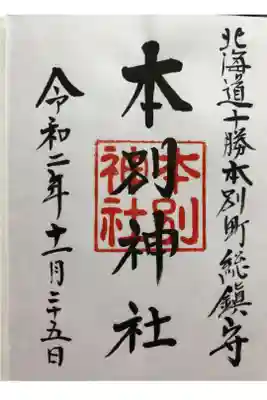 北海道十勝本別町総鎮守
本別神社
本別
神社
令和二年十一月二十五日